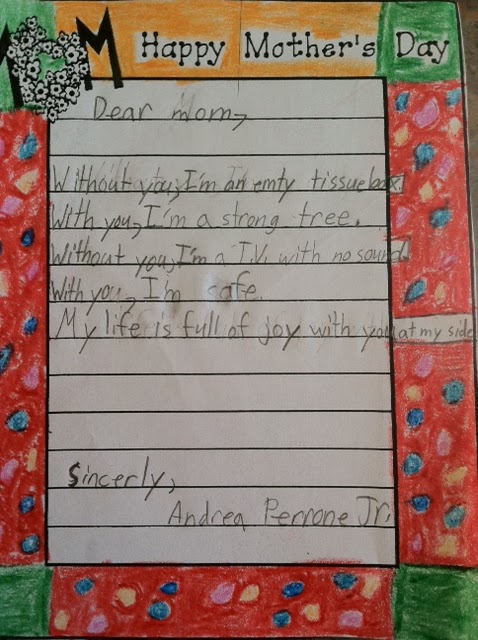 MOM Happy Mother's Day
Dear Mom,
Without you, I'm an emty tissue box.
With you, I'm a strong tree.
Without you, I'm a T.V. with no sound.
With you, I'm safe.
My life is full of joy with you at my side
Sincerly,
Andrea Perrone Jr.